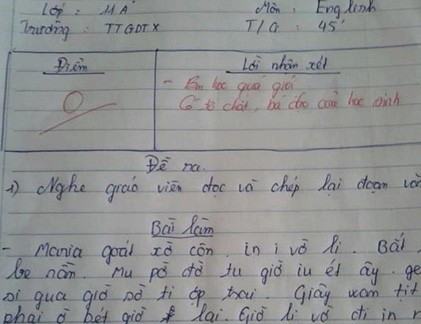 Lớp : 11A Môn : English
Trường : TTGDTX T/G : 45'
Điểm
0
Lời nhận xét
- Em học quá giỏi
Có tố chất, bá đạo của học sinh
Đề ra.
1) Nghe giáo viên đọc và chép lại đoạn
Bài làm
- Mania goát xờ côn. in i vờ li. Bất
be nằn. Mu pờ đờ tu giờ iu ét ây. ge
si qua giờ sờ ti ốp trai. Giây xam tit
phai ờ hét giờ lai. Giờ li vờ đi in